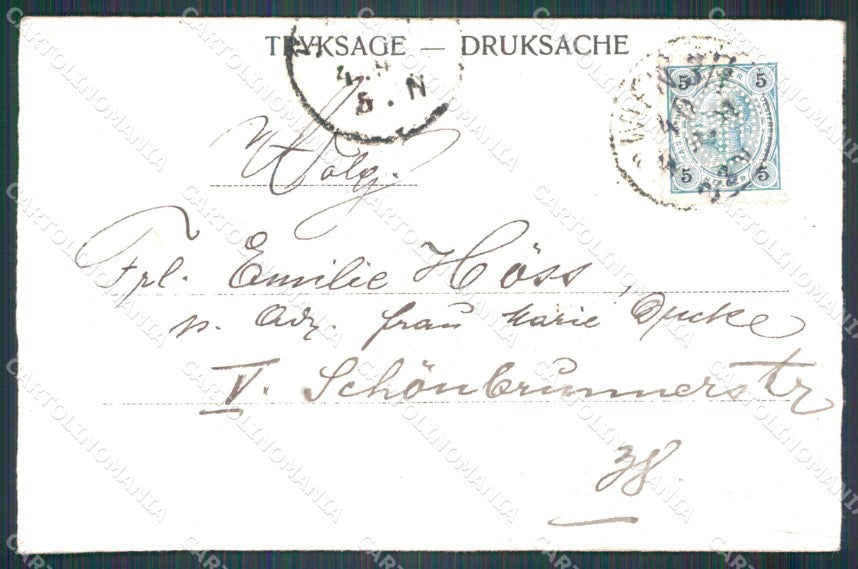 TRYKSAGE — DRUKSACHE
5 . N
WIEN
5 5
5 5
Wolg.
Frl. Emilie Höss,
p. Adr. frau Marie
V. Schönbrunnerstr
38.
CARTOLINOMANIA